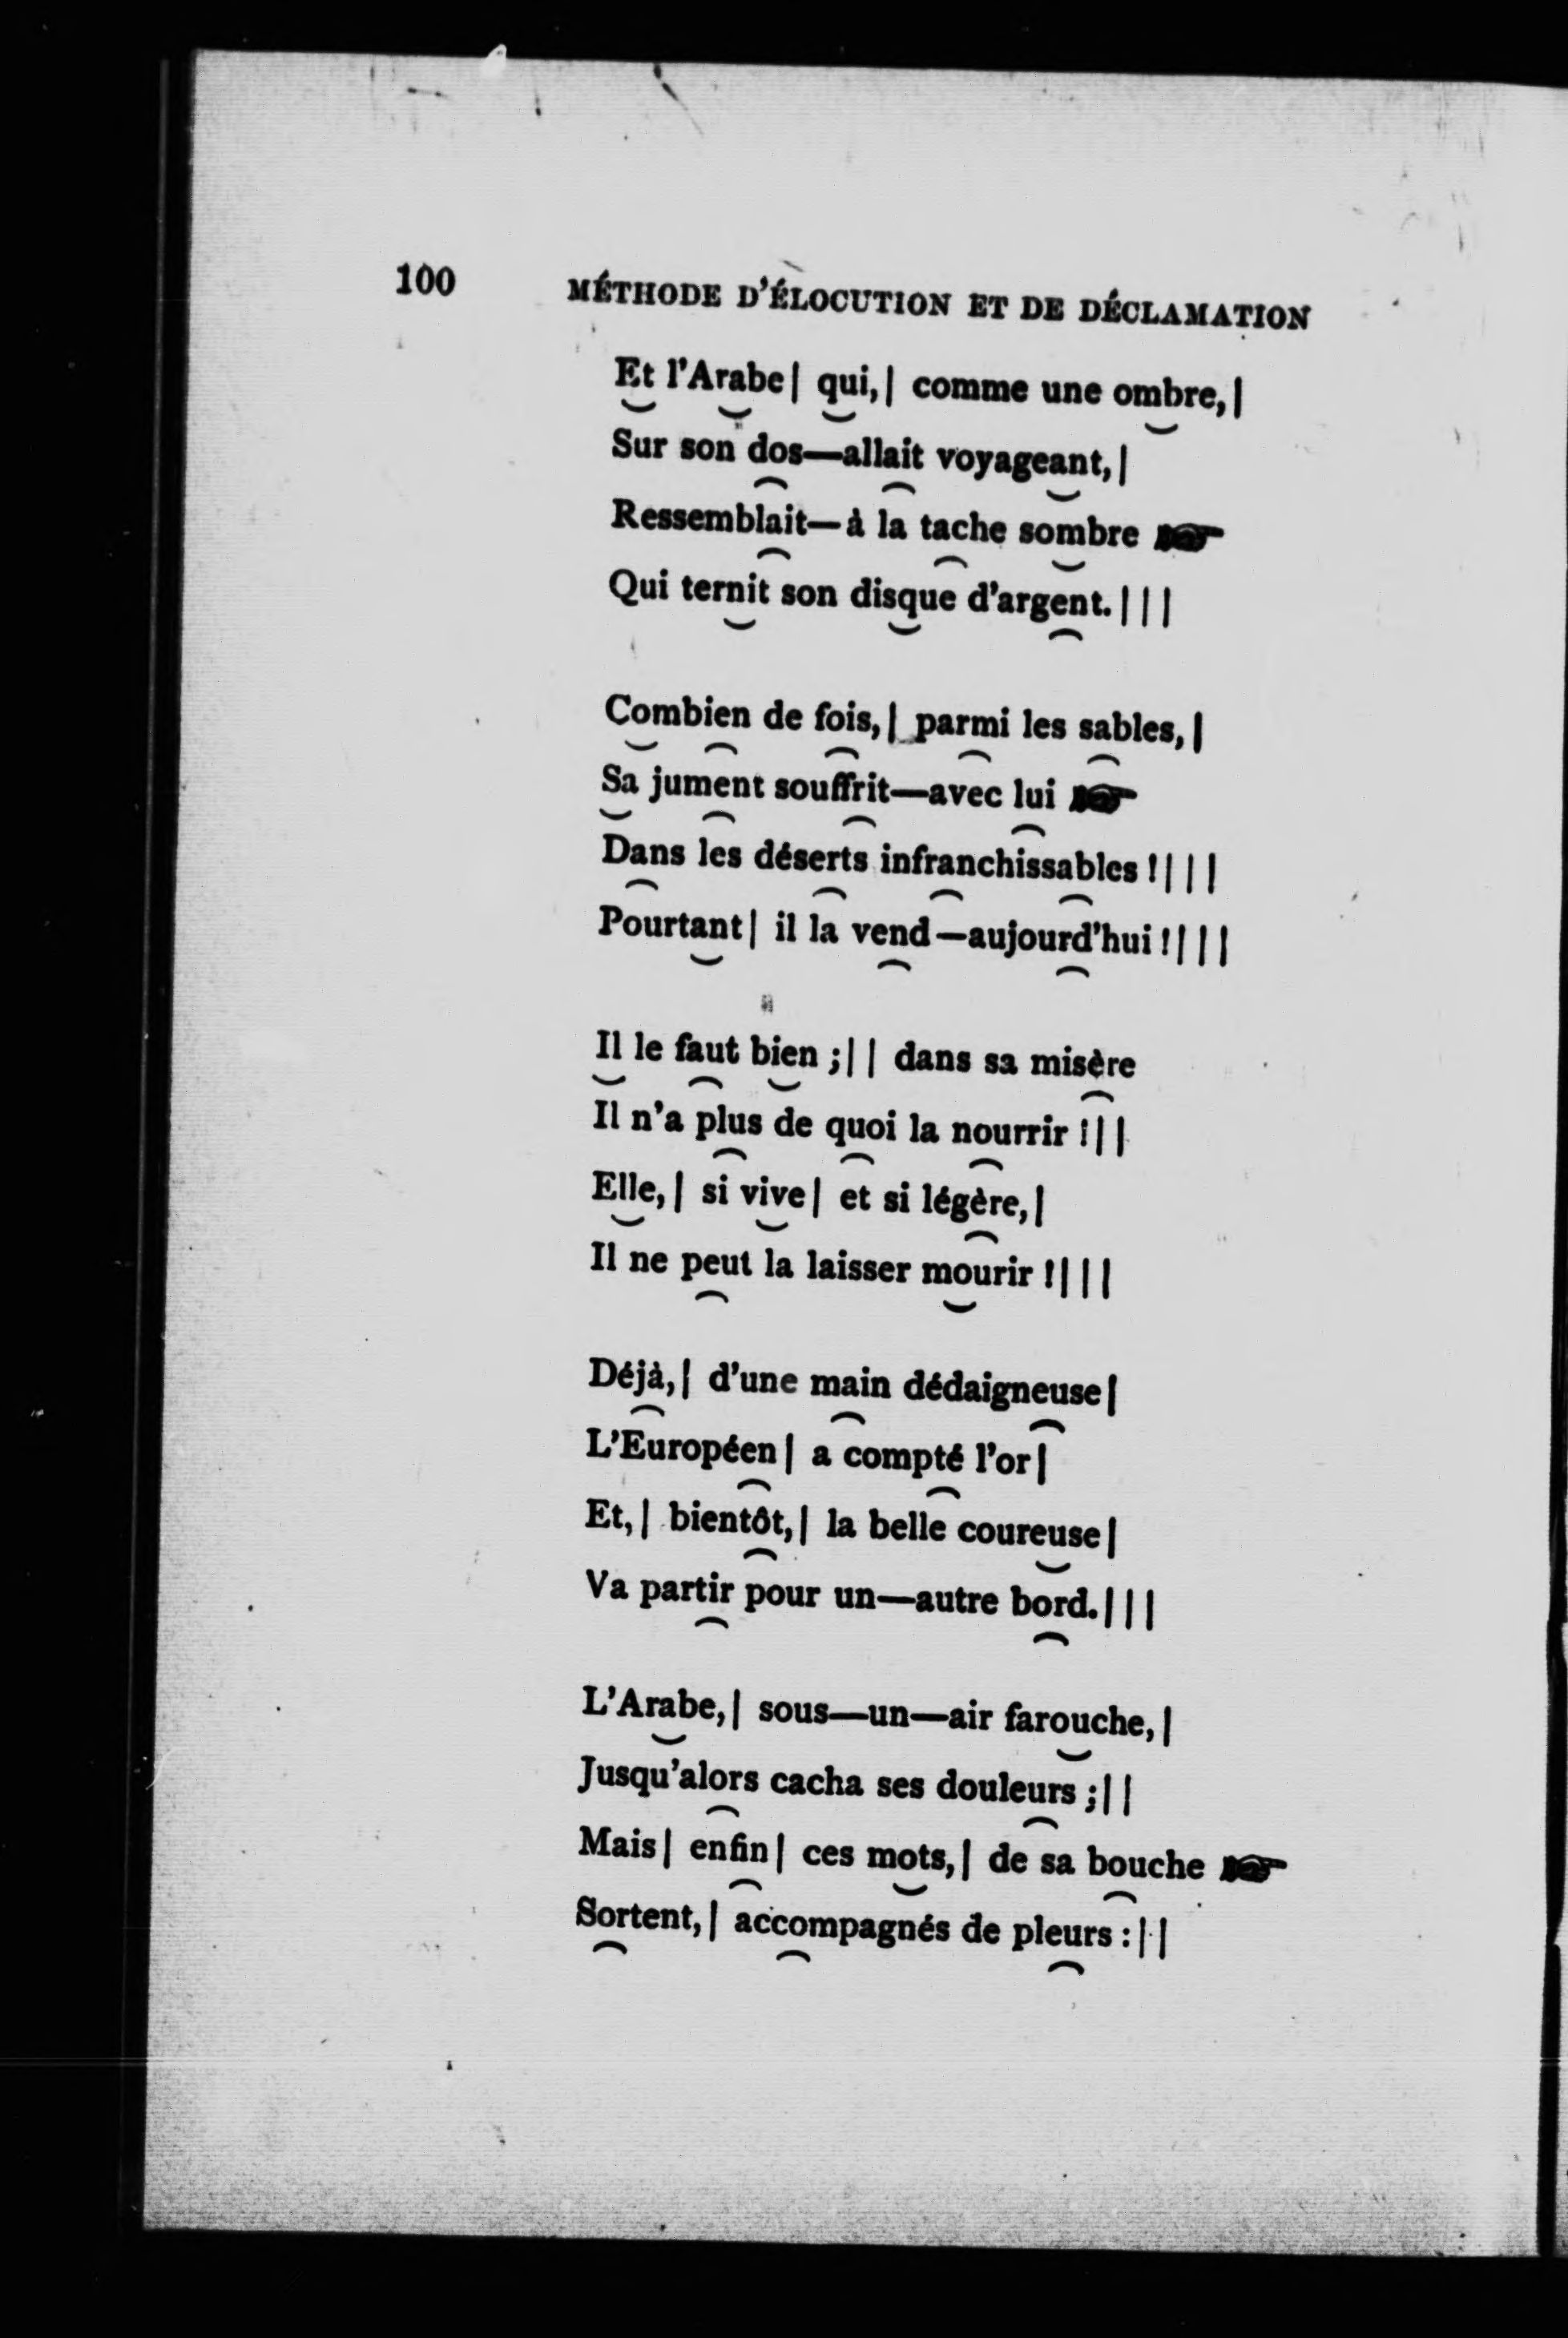 100 MÉTHODE D'ÉLOCUTION ET DE DÉCLAMATION
Et l'Arabe| qui,| comme une ombre,|
Sur son dos—allait voyageant,|
Ressemblait—à la tache sombre ☛
Qui ternit son disque d'argent.|||
Combien de fois,| parmi les sables,|
Sa jument souffrit—avec lui ☛
Dans les déserts infranchissables !|||
Pourtant| il la vend—aujourd'hui !|||
Il le faut bien ;|| dans sa misère
Il n'a plus de quoi la nourrir !||
Elle,| si vive| et si légère,|
Il ne peut la laisser mourir !|||
Déjà,| d'une main dédaigneuse|
L'Européen| a compté l'or|
Et,| bientôt,| la belle coureuse|
Va partir pour un—autre bord.|||
L'Arabe,| sous—un—air farouche,|
Jusqu'alors cacha ses douleurs ;||
Mais| enfin| ces mots,| de sa bouche ☛
Sortent,| accompagnés de pleurs :||